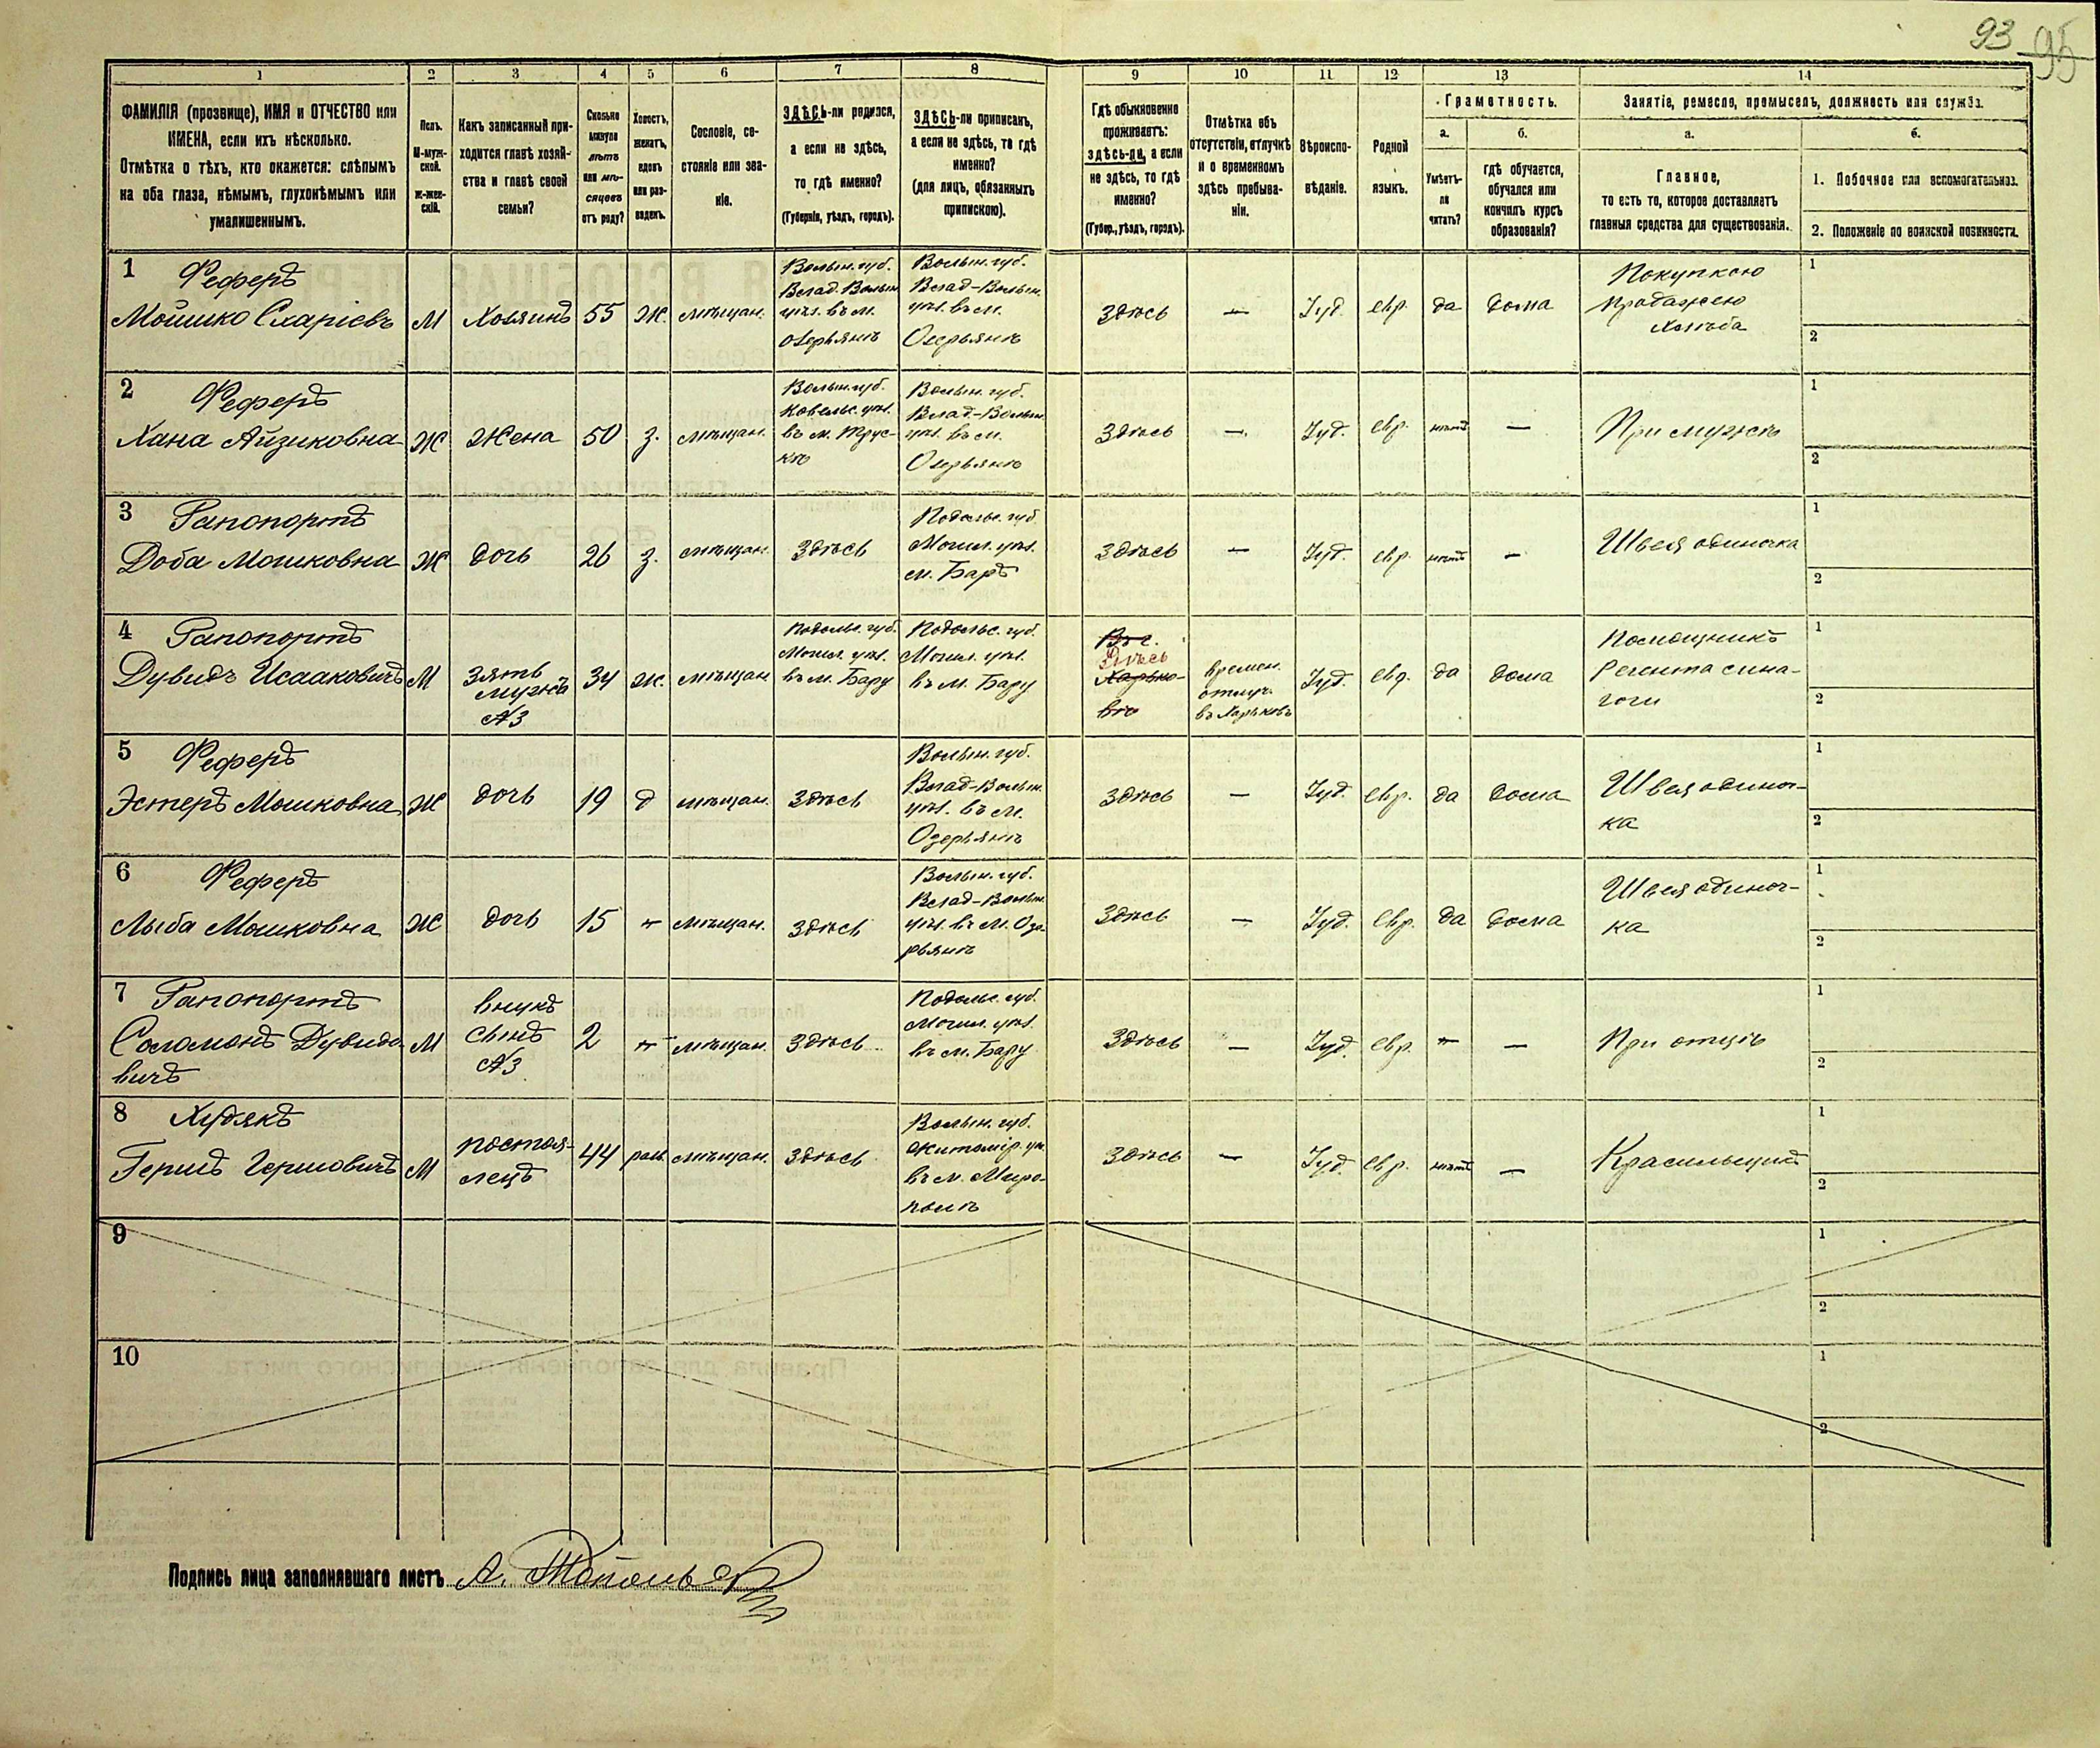 93 95
1 2 3 4 5 6 7 8 9 10 11 12 13 14
ФАМИЛІЯ (прозвище), ИМЯ и ОТЧЕСТВО или
ИМЕНА, если ихъ нѣсколько.
Отмѣтка о тѣхъ, кто окажется: слѣпымъ
на оба глаза, нѣмымъ, глухонѣмымъ или
умалишеннымъ.
Полъ.
М-муж-
ской.
Ж-жен-
скій.
Какъ записанный при-
ходится главѣ хозяй-
ства и главѣ своей
семьи?
Сколько
минуло
лѣтъ
или мѣ-
сяцевъ
отъ роду?
Холостъ,
женатъ,
вдовъ
или раз-
веденъ.
Сословіе, со-
стояніе или зва-
ніе.
ЗДѢСЬ-ли родился,
а если не здѣсь,
то гдѣ именно?
(Губернія, уѣздъ, городъ).
ЗДѢСЬ-ли приписанъ,
а если не здѣсь, то гдѣ
именно?
(для лицъ, обязанныхъ
припискою).
Гдѣ обыкновенно
проживаетъ:
здѣсь-ли, а если
не здѣсь, то гдѣ
именно?
(Губер., уѣздъ, городъ).
Отмѣтка объ
отсутствіи, отлучкѣ
и о временномъ
здѣсь пребыва-
ніи.
Вѣроиспо-
вѣданіе.
Родной
языкъ.
Грамотность.
а.
Умѣетъ-
ли
читать?
б.
гдѣ обучается,
обучался или
кончилъ курсъ
образованія?
Занятіе, ремесло, промыселъ, должность или служба.
а.
Главное,
то есть то, которое доставляетъ
главныя средства для существованія.
б.
1. Побочное или вспомогательное.
2. Положеніе по воинской повинности.
1 Феферъ
Мошко Сларіевъ
М
Хозяинъ
55
Ж.
мѣщан.
Волын. губ.
Влад. Волын.
уѣз. въ м.
Озерьянѣ
Волын. губ.
Влад-Волын.
уѣз. въ м.
Озерьянѣ
здѣсь
—
Іуд.
евр.
да
дома
Покупкою
продажею
хлѣба
1
2
2 Феферъ
Хана Айзиковна
Ж
Жена
50
з.
мѣщан.
Волын. губ.
Ковельс. уѣз.
въ м. Трус-
кѣ
Волын. губ.
Влад-Волын.
уѣз. въ м.
Озерьянѣ
здѣсь
—
Іуд.
евр.
нѣтъ
—
При мужѣ
1
2
3 Рапопортъ
Доба Мошковна
Ж
дочь
26
з.
мѣщан.
Здѣсь
Подольс. губ.
Могил. уѣз.
м. Баръ
здѣсь
—
Іуд.
евр.
нѣтъ
—
Швея одиночка
1
2
4 Рапопортъ
Дувидъ Исааковичъ
М
зять
мужъ
№3
34
ж.
мѣщан
Подольс. губ.
Могил. уѣз.
въ м. Бару
Подольс. губ.
Могил. уѣз.
въ м. Бару
Въ г.
Здѣсь
Харько-
вѣ
времен.
отлуч.
въ Харьковъ
Іуд.
евр.
да
дома
Помощникъ
Регента сина-
гоги
1
2
5 Феферъ
Эстеръ Мошковна
Ж
дочь
19
д
мѣщан.
Здѣсь
Волын. губ.
Влад-Волын.
уѣз. въ м.
Озерьянѣ
здѣсь
—
Іуд.
евр.
да
дома
Швея одиноч-
ка
1
2
6 Феферъ
Лыба Мошковна
Ж
дочь
15
мѣщан.
здѣсь
Волын. губ.
Влад-Волын.
уѣз. въ м. Озе-
рьянѣ
здѣсь
—
Іуд.
евр.
да
дома
Швея одиноч-
ка
1
2
7 Рапопортъ
Соломонъ Дувидо-
вичъ
М
внукъ
сынъ
№3
2
мѣщан.
здѣсь
Подольс. губ.
Могил. уѣз.
въ м. Бару
здѣсь
—
Іуд.
евр.
—
При отцѣ
1
2
8 Худякъ
Гершъ Гершовичъ
М
постоя-
лецъ
44
разв.
мѣщан.
здѣсь
Волын. губ.
Житомір. уѣ.
въ м. Миро-
польѣ
здѣсь
—
Іуд.
евр.
нѣтъ
—
Красильщикъ
1
2
9
1
2
10
1
2
Подпись лица заполнявшаго листъ А.